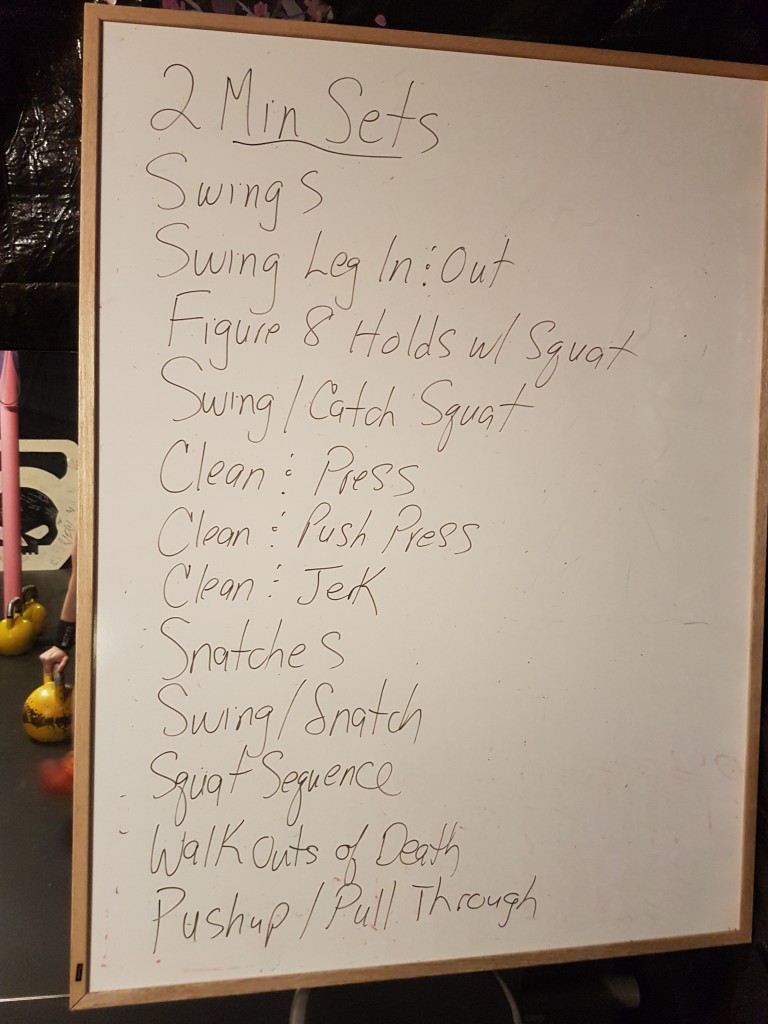 2 Min Sets
Swings
Swing Leg In & Out
Figure 8 Holds w/ Squat
Swing/Catch Squat
Clean & Press
Clean & Push Press
Clean & Jerk
Snatches
Swing/Snatch
Squat Sequence
Walk Outs of Death
Pushup/Pull Through